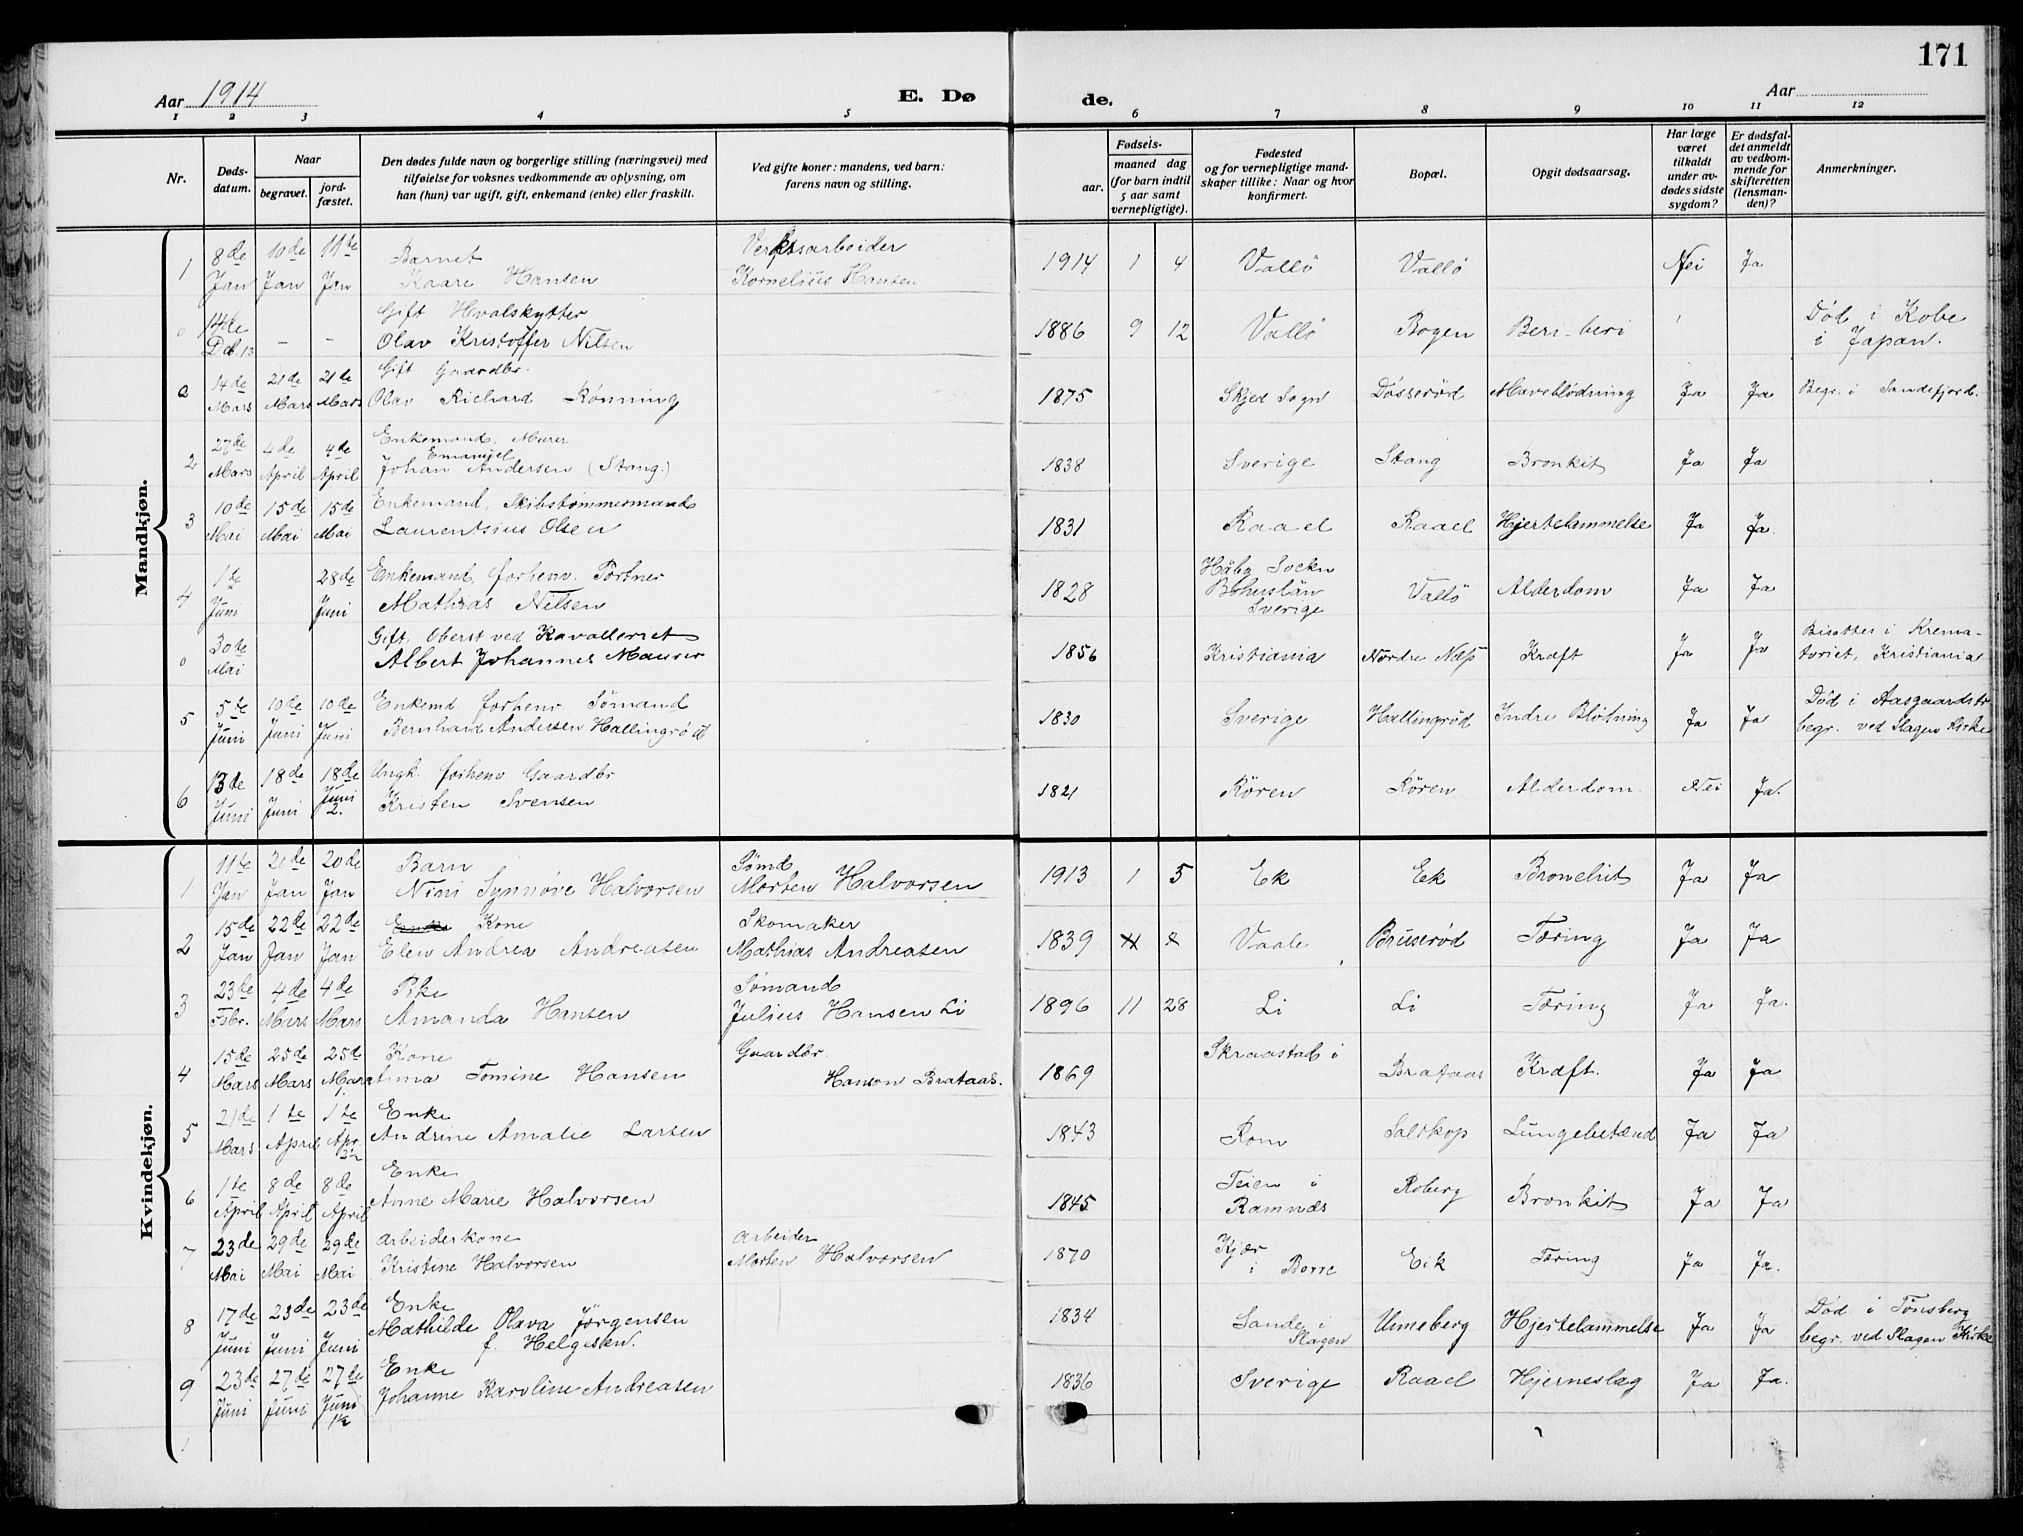 171
Aar 1914
E. Dø
de.
Aar
1 2 3 4 5 6 7 8 9 10 11 12
Nr.
Døds-
datum.
Naar
begravet.
jord-
fæstet.
Den dødes fulde navn og borgerlige stilling (næringsvei) med
tilføielse for voksnes vedkommende av oplysning, om
han (hun) var ugift, gift, enkemand (enke) eller fraskilt.
Ved gifte koner: mandens, ved barn:
farens navn og stilling.
Fødsels-
aar.
maaned dag
(for barn indtil
5 aar samt
vernepligtige).
Fødested
og for vernepligtige mand-
skaper tillike: Naar og hvor
konfirmert.
Bopæl.
Opgit dødsaarsag.
Har læge
været
tilkaldt
under av-
dødes sidste
sygdom?
Er dødsfal-
det anmeldt
av vedkom-
mende for
skifteretten
(lensman-
den)?
Anmerkninger.
Mandkjøn.
1 8de Jan 10de Jan 11te Jan Barnet Verksarbeider
Kaare Hansen Kornelius Hansen 1914 1 4 Vallö Vallö Nei Ja
0 14de Dcb 13 - - Gift Hvalskytter
Olav Kristoffer Nilsen 1886 9 12 Vallö Bogen Beri-beri Død i Kobe
i Japan.
2 14de Mars 21de Mars 21de Mars Gift Gaardbr.
Olav Richard Rönning 1875 Skjed Sogn Døsserød Maveblödning Ja Ja Begr. i Sandefjord.
2 27de Mars 4de April 4de April Enkemand, Murer
Emanuel
Johan Andersen (Stang.) 1838 Sverige Stang Bronkit Ja Ja
3 10de Mai 15de Mai 15de Mai Enkemand, Skibstømmermand
Laurentsius Olsen 1831 Raael Raael Hjertelammelse Ja Ja.
4 1te Juni 28de Juni Enkemand, forhenv. Portner
Mathias Nilsen 1828 Håby Sockn
Bohuslän
Sverige Vallö Alderdom Ja Ja
0 30te Mai Gift, Oberst ved Kavalleriet
Albert Johannes Maurer 1856 Kristiania Nordre Næs Kræft Ja Ja Bisattes i Krema-
toriet, Kristiania
5 5te Juni 10de Juni 10de Juni Enkemd forhenv Sømand
Bernhard Andersen Hallingrød 1830 Sverige Hallingrød Indre Blödning Ja Ja Død i Aasgaardstr
begr. ved Slagen Kirke
6 13de Juni 18de Juni 18de Juni 2. Ungk. forhenv Gaardbr.
Kristen Svensen 1821 Røren Røren Alderdom. Nei Ja.
Kvindekjøn.
1 11te Jan 20de Jan 20de Jan Barn Sømd
Nini Synnøve Halvorsen Morten Halvorsen 1913 1 5 Ek Ek Bronchit Ja Ja
2 15de Jan 22de Jan 22de Jan Enke Kone Skomaker
Elen Andrea Andreasen Mathias Andreasen 1839 Vaale Bruserød Tæring Ja Ja
3 23de Febr. 4de Mars 4de Mars Pike Sømand
Amanda Hansen Julius Hansen Li 1896 11 28 Li Li Tæring Ja Ja.
4 15de Mars 25de Mars 25de Mars Kone Gaardbr.
Anna Tomine Hansen Hanson Brataas. 1869 Skraastad i Brataas Kræft. Ja Ja
5 21de Mars 1te April 1te Apr. Enke
Andrine Amalie Larsen 1843 Rom Saltkop Lungebetænd Ja Ja
6 1te April 8de April 8de April Enke
Anne Marie Halvorsen 1845 Teien i
Ramnæs Roberg Bronkit Ja Ja
7 23de Mai 29de Mai 29de Mai Arbeiderkone Arbeider
Kristine Halvorsen Morten Halvorsen 1870 Kjær
i Borre Eik Tæring Ja Ja.
8 17de Juni 23de Juni 23de Juni Enke
Mathilde Olava Jörgensen
f. Helgesen. 1834 Sande i
Slagen Unneberg Hjertelammelse Ja Ja Død i Tönsberg
begr. ved Slagen Kirke
9 23de Juni 27de Juni 27de Juni Enke
Johanne Karoline Andreasen 1836 Sverige Raael Hjerneslag Ja Ja.